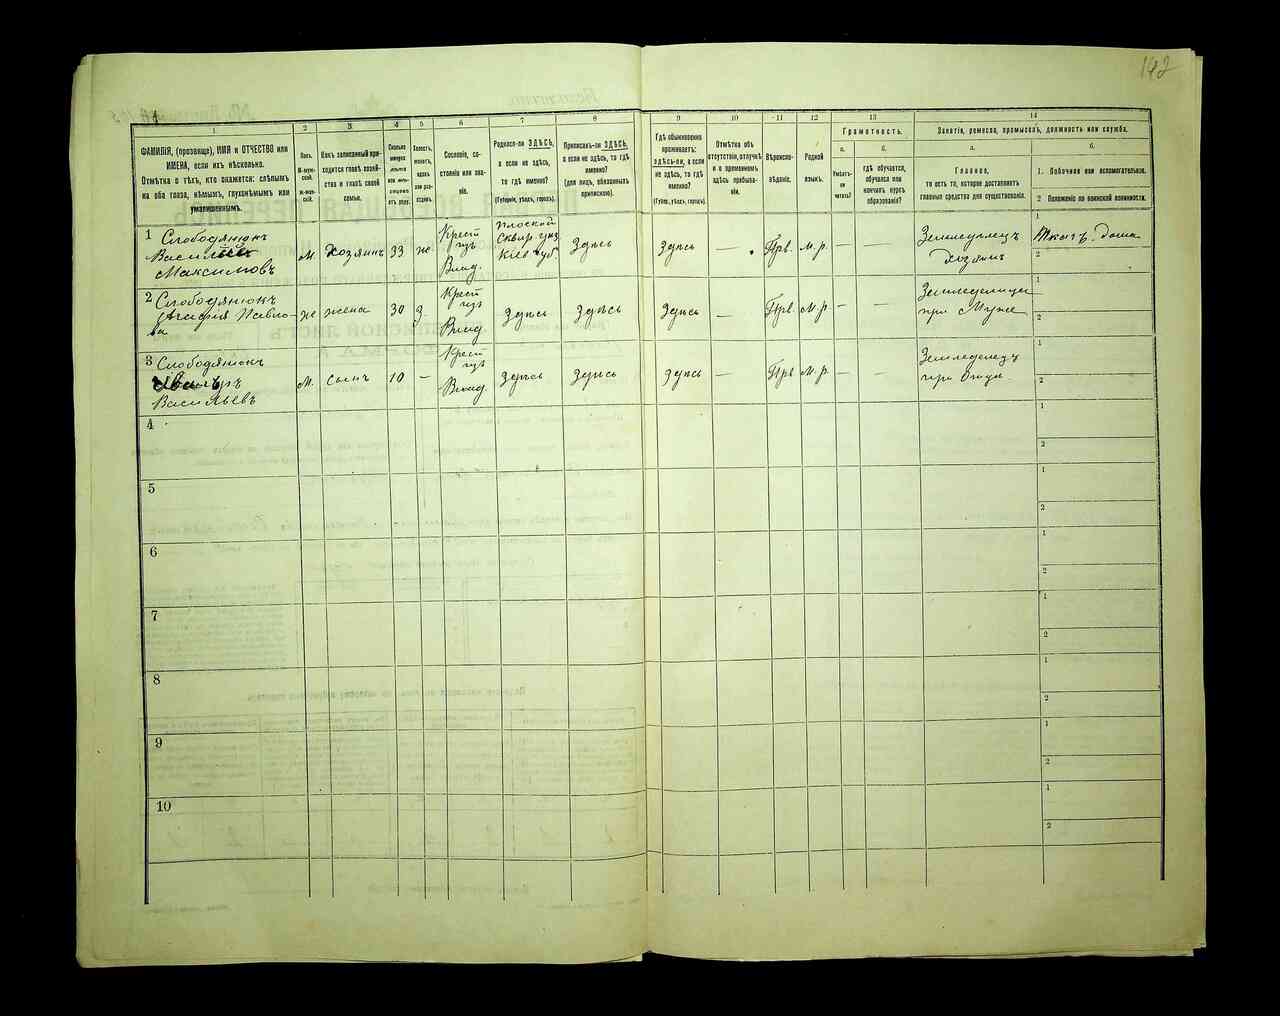 142
1
2
3
4
5
6
7
8
9
10
11
12
13
14
ФАМИЛІЯ, (прозвище), ИМЯ и ОТЧЕСТВО или
ИМЕНА, если ихъ нѣсколько.
Отмѣтка о тѣхъ, кто окажется: слѣпымъ
на оба глаза, нѣмымъ, глухонѣмымъ или
умалишеннымъ.
Полъ.
М-муж-
ской.
Ж-жен-
скій.
Какъ записанный при-
ходится главѣ хозяй-
ства и главѣ своей
семьи.
Сколько
минуло
лѣтъ
отъ роду.
Холостъ,
женатъ,
вдовъ
или раз-
веденъ.
Сословіе, со-
стояніе или зва-
ніе.
Родился-ли ЗДѢСЬ,
а если не здѣсь,
то гдѣ именно?
(Губернія, уѣздъ, городъ).
Приписанъ-ли ЗДѢСЬ,
а если не здѣсь, то гдѣ
именно?
(для лицъ, обязанныхъ
припискою).
Гдѣ обыкновенно
проживаетъ:
здѣсь-ли, а если
не здѣсь, то гдѣ
именно?
(Губер., уѣздъ, городъ).
Отмѣтка объ
отсутствіи, отлучкѣ
и о временномъ
здѣсь пребыва-
ніи.
Вѣроиспо-
вѣданіе.
Родной
языкъ.
Грамотность.
а.
Умѣетъ-
ли
читать?
б.
гдѣ обучается,
обучался или
кончилъ курсъ
образованія?
Занятія, ремесло, промыселъ, должность или служба.
а.
Главное,
то есть то, которое доставляетъ
главныя средства для существованія.
б.
1. Побочное или вспомогательное.
2 Положеніе по воинской повинности.
1 Слободянюкъ
Василь
Максимовъ
м. Хозяинъ 33 ж Крест изъ Влад. Плоской Сквир. уѣз Кіев губ Здѣсь Здѣсь — Прв. м.р. — — Земледѣлецъ Хозяинъ 1 Ткачъ. Дома 2
2 Слободянюкъ
Агафія Павло-
ва
ж жена 30 з. Крест изъ Влад. Здѣсь Здѣсь Здѣсь — Прв. м.р. — — Земледѣлица при Мужѣ 1 2
3 Слободянюкъ
Васильевъ
м. Сынъ 10 — Крест изъ Влад. Здѣсь Здѣсь Здѣсь — Прв м.р. — — Земледѣлецъ при Отцѣ 1 2
4 1 2
5 1 2
6 1 2
7 1 2
8 1 2
9 1 2
10 1 2